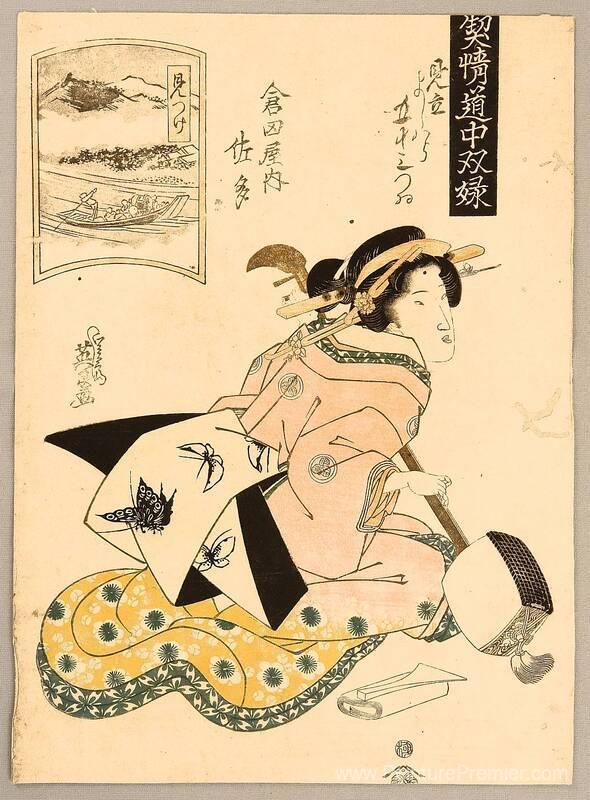 契情道中双娽
見立
よしはら
五十三つゐ
倉田屋内
佐多
見つけ
渓斎
英泉画